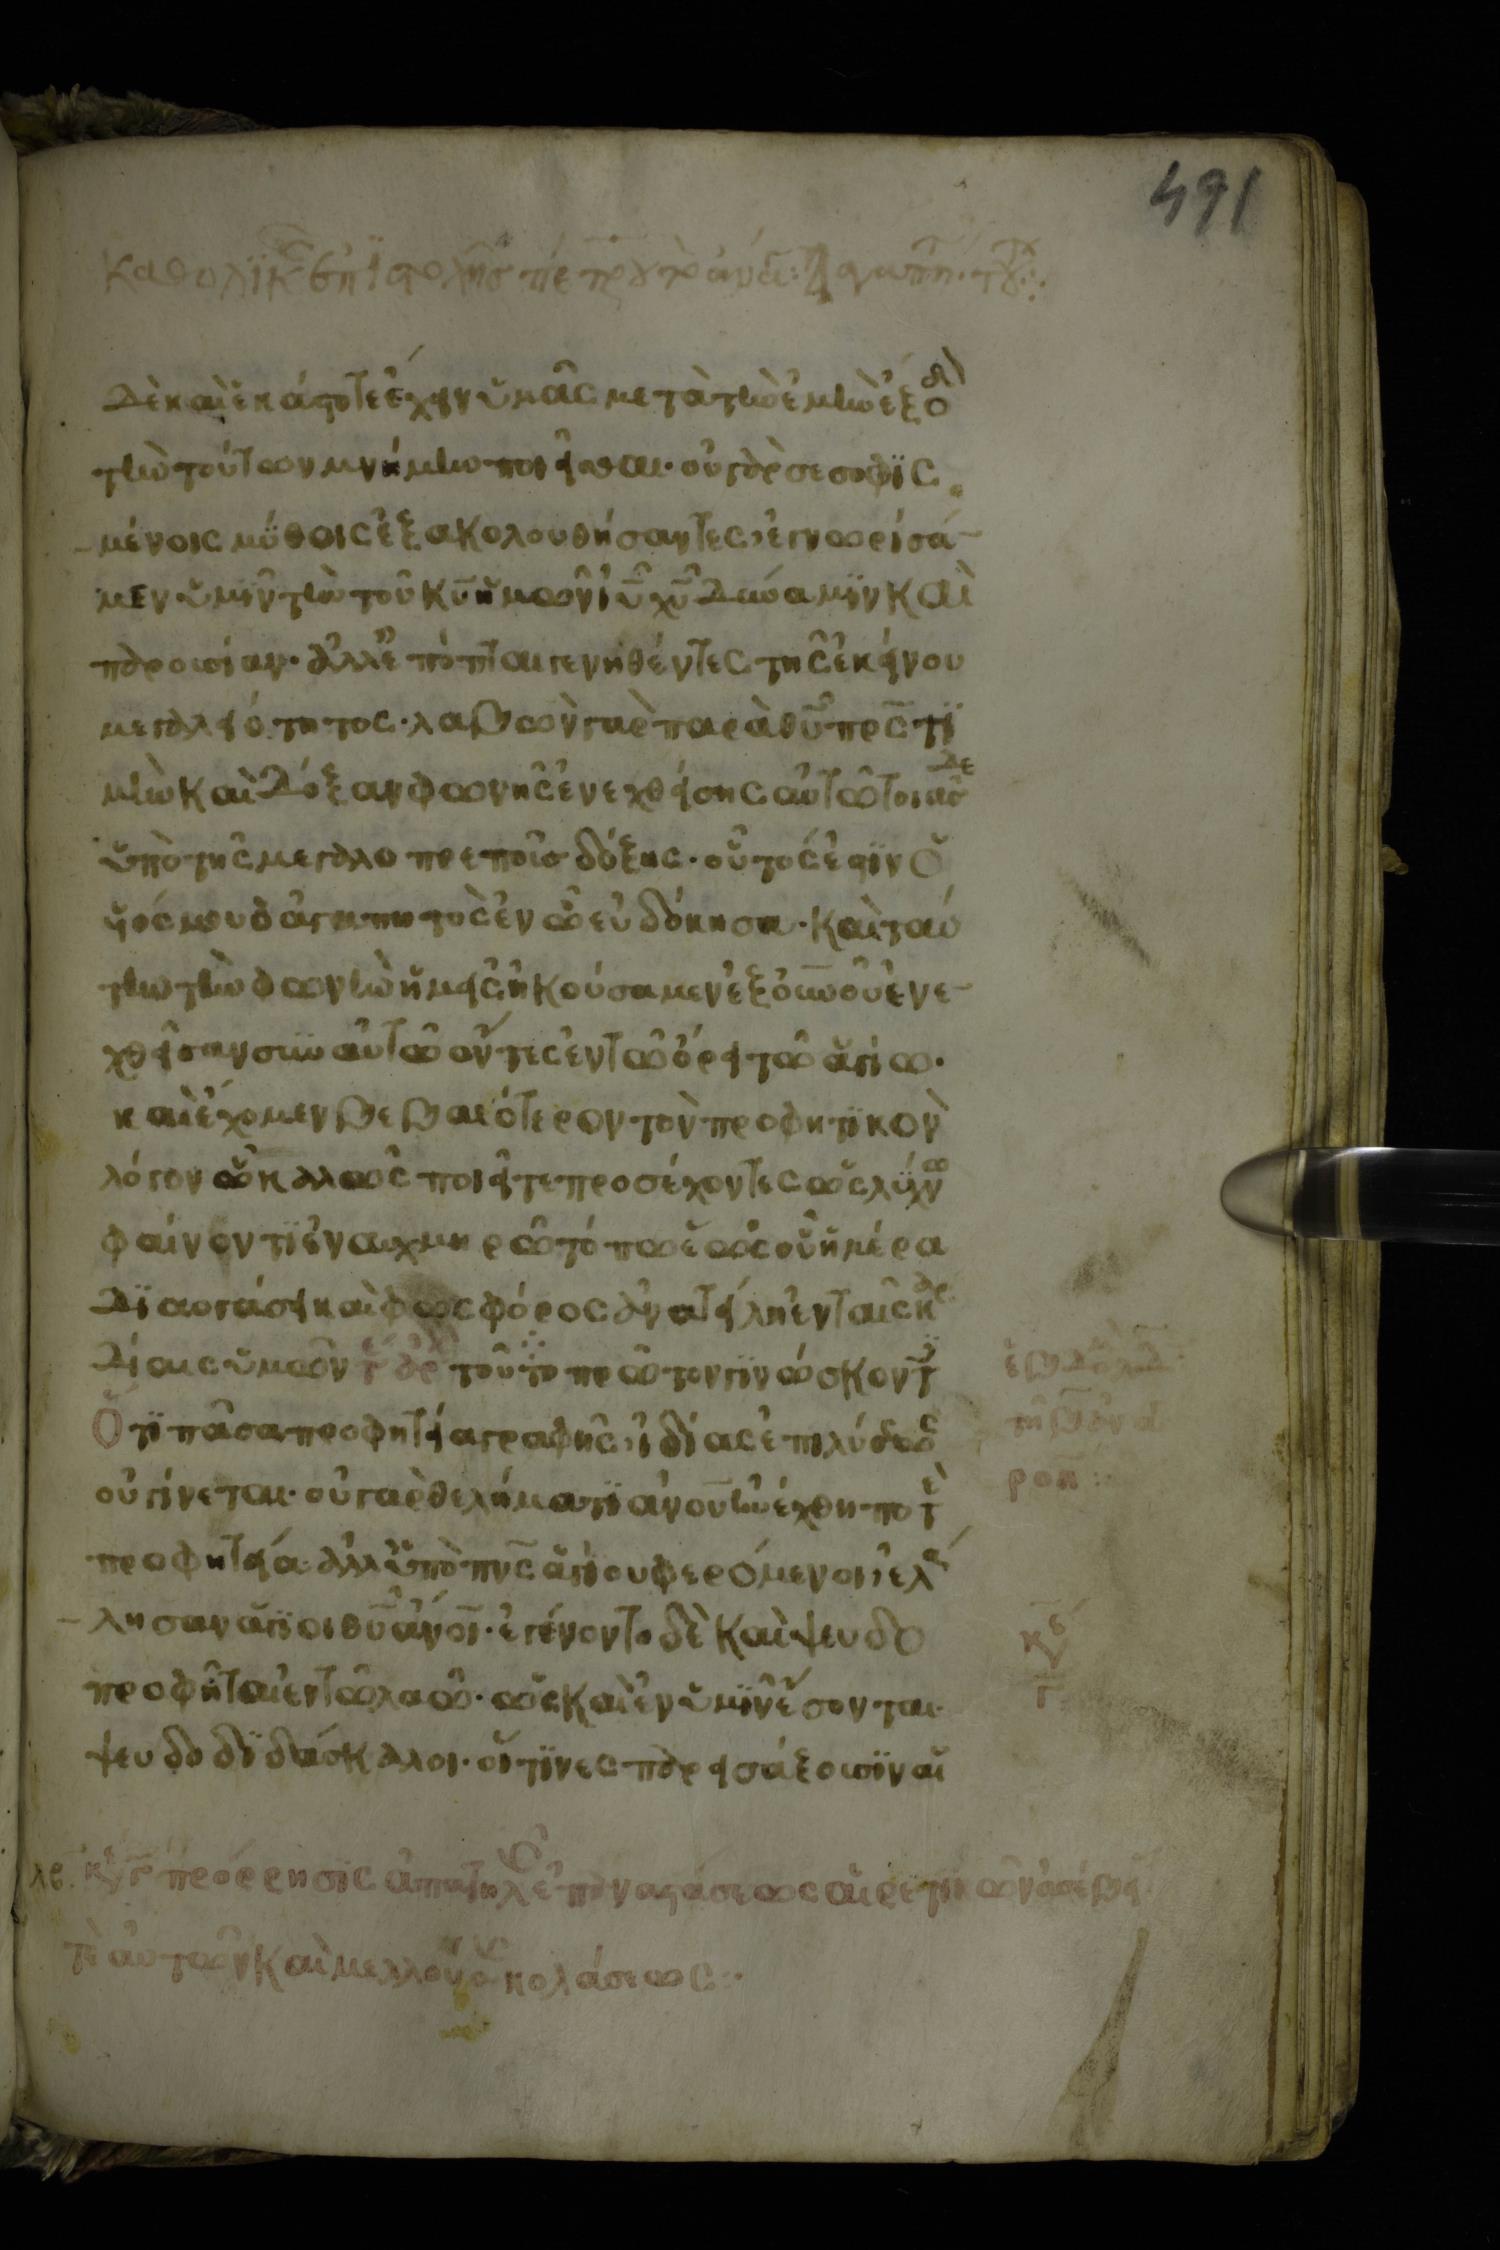 491
δὲ καὶ ἑκάστοτε ἔχειν ὑμᾶς μετὰ τὴν ἐμὴν ἔξοδ
τὴν τούτων μνήμην ποιεῖσθαι· οὐ γὰρ σεσοφϊς
μένοις μύθοις ἐξακολουθήσαντες, ἐγνωρίσα
μεν ὑμῖν τὴν τοῦ κ̅υ̅ ἡμῶν ι̅υ̅ χ̅υ̅ δύναμϊν καὶ
παρουσίαν· ἀλλ' ἐπόπται γενηθέντες τῆς ἐκείνου
μεγαλειότητος· λαβὼν γὰρ παρὰ θ̅υ̅ π̅ρ̅ς̅ τϊ
μὴν καὶ δόξαν φωνῆς ἐνεχθείσης αὐτῶ τοιᾶσδε
ὑπὸ τῆς μεγαλοπρεποῦσ δόξης· οὗτός ἐστϊν ὁ
ὑϊός μου ὁ ἀγαπητὸς ἐν ὧ εὐδόκησα· καὶ ταύ
την τὴν φωνὴν ἡμεῖς ἠκούσαμεν ἐξ ο̅υ̅ν̅ο̅υ̅ ἐνε
χθεῖσαν σὺν αὐτῶ ὄντες ἐν τῶ ὄρει τῶ ἁγίω·
καὶ ἔχομεν βεβαιότερον τὸν προφητϊκὸν
λόγον ὧ καλῶς ποιεῖτε προσέχοντες ὡς λύχνω
φαίνοντϊ ἐν αυχμηρῶ τόπω ἕως οὗ ἡμέρα
δϊαυγάσει καὶ φωσφόρος ἀνατείλη ἐν ταῖς καρ
δίαις ὑμῶν τοῦτο πρῶτον γϊνώσκοντ
Ὅτϊ πᾶσα προφητεία γραφῆς, ἰδίας ἐπιλύσεως
οὐ γίνεται· οὐ γὰρ θελήματϊ α̅ν̅ο̅υ̅ ἠνέχθη ποτὲ
προφητεία· ἀλλ' ὑπὸ π̅ν̅ς̅ ἁγίου φερόμενοι, ἐλά
λησαν ἅγϊοι θ̅υ̅ α̅ν̅ο̅ι̅· ἐγένοντο δὲ καὶ ψευδο
προφῆται ἐν τῶ λαῶ· ὡς καὶ ἐν ὑμῖν ἔσονται
ψευδοδϊδάσκαλοι· οἵτϊνες παρεισάξουσϊν αἱ
πρόρρησϊς ἀπατηλ ἐπαναστάσεως αἱρετϊκῶν ἀσεβεί
τε αὐτῶν καὶ μελλού κολάσεως:·